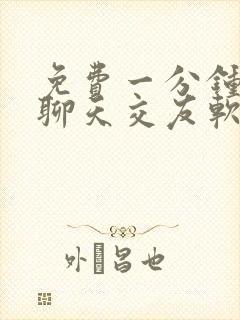 免費一分鍾
聊天交友軟
外 昌也